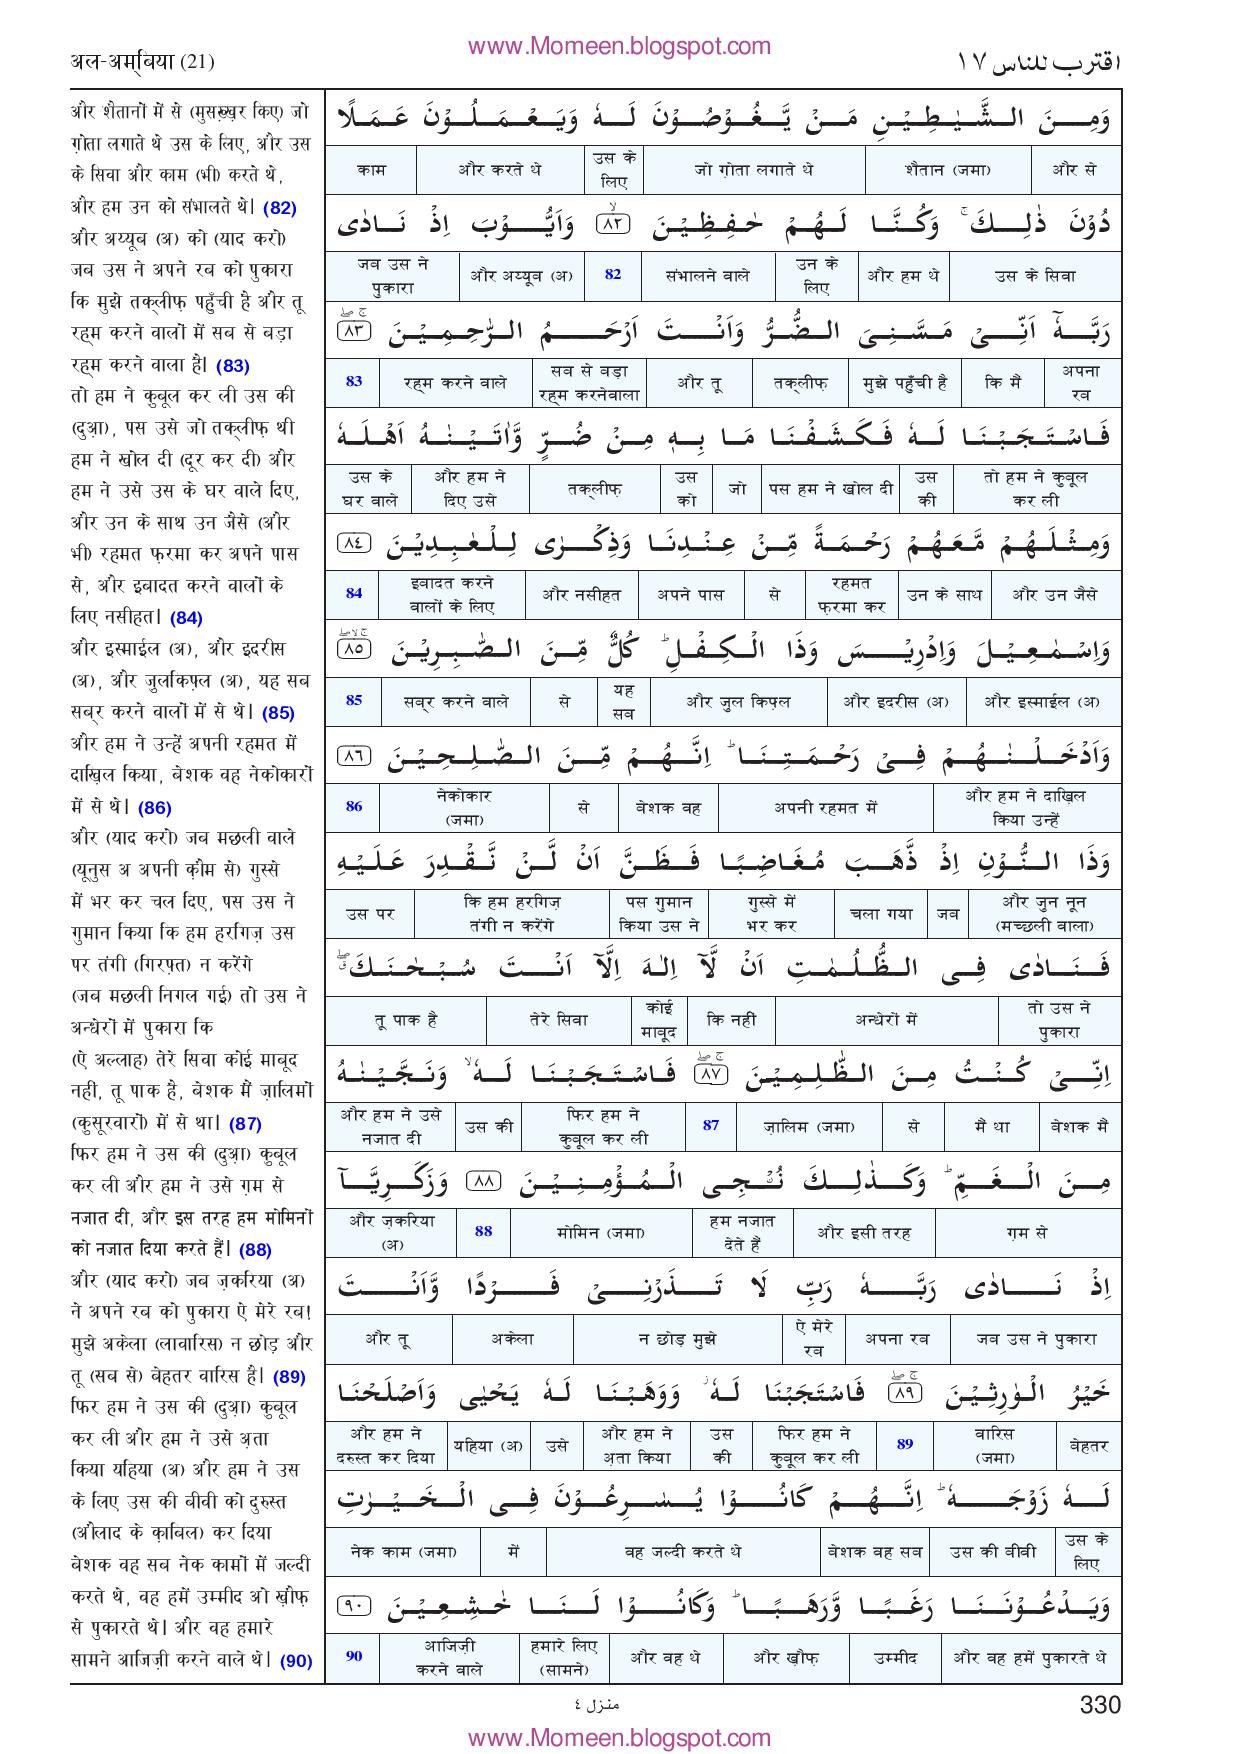 www.Momeen.blogspot.com
अल-अम्बिया (21)
اقترب للناس ١٧
और शैतानों में से (मुसख़्ख़र किए) जो
ग़ोता लगाते थे उस के लिए, और उस
के सिवा और काम (भी) करते थे,
और हम उन को संभालते थे। (82)
और अय्यूब (अ) को (याद करो)
जब उस ने अपने रब को पुकारा
कि मुझे तक्लीफ़ पहुँची है और तू
रहम करने वालों में सब से बड़ा
रहम करने वाला है। (83)
तो हम ने कुबूल कर ली उस की
(दुआ), पस उसे जो तक्लीफ़ थी
हम ने खोल दी (दूर कर दी) और
हम ने उसे उस के घर वाले दिए,
और उन के साथ उन जैसे (और
भी) रहमत फ़रमा कर अपने पास
से, और इबादत करने वालों के
लिए नसीहत। (84)
और इस्माईल (अ), और इदरीस
(अ), और जुलकिफ़्ल (अ), यह सब
सब्र करने वालों में से थे। (85)
और हम ने उन्हें अपनी रहमत में
दाख़िल किया, बेशक वह नेकोकारों
में से थे। (86)
और (याद करो) जब मछली वाले
(यूनुस अ अपनी क़ौम से) गुस्से
में भर कर चल दिए, पस उस ने
गुमान किया कि हम हरगिज़ उस
पर तंगी (गिरफ़्त) न करेंगे
(जब मछली निगल गई) तो उस ने
अन्धेरों में पुकारा कि
(ऐ अल्लाह) तेरे सिवा कोई माबूद
नहीं, तू पाक है, बेशक मैं ज़ालिमों
(कुसूरवारों) में से था। (87)
फिर हम ने उस की (दुआ) कुबूल
कर ली और हम ने उसे ग़म से
नजात दी, और इस तरह हम मोमिनों
को नजात दिया करते हैं। (88)
और (याद करो) जब ज़करिया (अ)
ने अपने रब को पुकारा ऐ मेरे रब!
मुझे अकेला (लावारिस) न छोड़ और
तू (सब से) बेहतर वारिस है। (89)
फिर हम ने उस की (दुआ) कुबूल
कर ली और हम ने उसे अता
किया यहिया (अ) और हम ने उस
के लिए उस की बीवी को दुरुस्त
(औलाद के क़ाबिल) कर दिया
बेशक वह सब नेक कामों में जल्दी
करते थे, वह हमें उम्मीद ओ ख़ौफ़
से पुकारते थे। और वह हमारे
सामने आजिज़ी करने वाले थे। (90)
وَمِنَ الشَّيٰطِيْنِ مَنْ يَّغُوْصُوْنَ لَهٗ وَيَعْمَلُوْنَ عَمَلًا
और से शैतान (जमा) जो ग़ोता लगाते थे उस के लिए और करते थे काम
دُوْنَ ذٰلِكَ ۚ وَكُنَّا لَهُمْ حٰفِظِيْنَ ۙ ٨٢ وَاَيُّوْبَ اِذْ نَادٰى
उस के सिवा और हम थे उन के लिए संभालने वाले 82 और अय्यूब (अ) जब उस ने पुकारा
رَبَّهٗٓ اَنِّىْ مَسَّنِىَ الضُّرُّ وَاَنْتَ اَرْحَمُ الرّٰحِمِيْنَ ٨٣
अपना रब कि मैं मुझे पहुँची है तक्लीफ़ और तू सब से बड़ा रहम करनेवाला रहम करने वाले 83
فَاسْتَجَبْنَا لَهٗ فَكَشَفْنَا مَا بِهٖ مِنْ ضُرٍّ وَّاٰتَيْنٰهُ اَهْلَهٗ
तो हम ने कुबूल कर ली उस की पस हम ने खोल दी जो उस को तक्लीफ़ और हम ने दिए उसे उस के घर वाले
وَمِثْلَهُمْ مَّعَهُمْ رَحْمَةً مِّنْ عِنْدِنَا وَذِكْرٰى لِلْعٰبِدِيْنَ ٨٤
और उन जैसे उन के साथ रहमत फ़रमा कर से अपने पास और नसीहत इबादत करने वालों के लिए 84
وَاِسْمٰعِيْلَ وَاِدْرِيْسَ وَذَا الْكِفْلِ ؕ كُلٌّ مِّنَ الصّٰبِرِيْنَ ٨٥
और इस्माईल (अ) और इदरीस (अ) और जुल किफ़्ल यह सब से सब्र करने वाले 85
وَاَدْخَلْنٰهُمْ فِىْ رَحْمَتِنَا ؕ اِنَّهُمْ مِّنَ الصّٰلِحِيْنَ ٨٦
और हम ने दाख़िल किया उन्हें अपनी रहमत में बेशक वह से नेकोकार (जमा) 86
وَذَا النُّوْنِ اِذْ ذَّهَبَ مُغَاضِبًا فَظَنَّ اَنْ لَّنْ نَّقْدِرَ عَلَيْهِ
और जुन नून (मच्छली वाला) जब चला गया गुस्से में भर कर पस गुमान किया उस ने कि हम हरगिज़ तंगी न करेंगे उस पर
فَنَادٰى فِى الظُّلُمٰتِ اَنْ لَّآ اِلٰهَ اِلَّآ اَنْتَ سُبْحٰنَكَ ۖ
तो उस ने पुकारा अन्धेरों में कि नहीं कोई माबूद तेरे सिवा तू पाक है
اِنِّىْ كُنْتُ مِنَ الظّٰلِمِيْنَ ٨٧ فَاسْتَجَبْنَا لَهٗ ۙ وَنَجَّيْنٰهُ
बेशक मैं मैं था से ज़ालिम (जमा) 87 फिर हम ने कुबूल कर ली उस की और हम ने उसे नजात दी
مِنَ الْغَمِّ ؕ وَكَذٰلِكَ نُـنْجِى الْمُؤْمِنِيْنَ ٨٨ وَزَكَرِيَّآ
ग़म से और इसी तरह हम नजात देते हैं मोमिन (जमा) 88 और ज़करिया (अ)
اِذْ نَادٰى رَبَّهٗ رَبِّ لَا تَذَرْنِىْ فَرْدًا وَّاَنْتَ
जब उस ने पुकारा अपना रब ऐ मेरे रब न छोड़ मुझे अकेला और तू
خَيْرُ الْوٰرِثِيْنَ ٨٩ فَاسْتَجَبْنَا لَهٗ وَوَهَبْنَا لَهٗ يَحْيٰى وَاَصْلَحْنَا
बेहतर वारिस (जमा) 89 फिर हम ने कुबूल कर ली उस की और हम ने अता किया उसे यहिया (अ) और हम ने दरुस्त कर दिया
لَهٗ زَوْجَهٗ ؕ اِنَّهُمْ كَانُوْا يُسٰرِعُوْنَ فِى الْخَيْرٰتِ
उस के लिए उस की बीवी बेशक वह सब वह जल्दी करते थे में नेक काम (जमा)
وَيَدْعُوْنَنَا رَغَبًا وَّرَهَبًا ؕ وَكَانُوْا لَنَا خٰشِعِيْنَ ٩٠
और वह हमें पुकारते थे उम्मीद और ख़ौफ़ और वह थे हमारे लिए (सामने) आजिज़ी करने वाले 90
منزل ٤
330
www.Momeen.blogspot.com